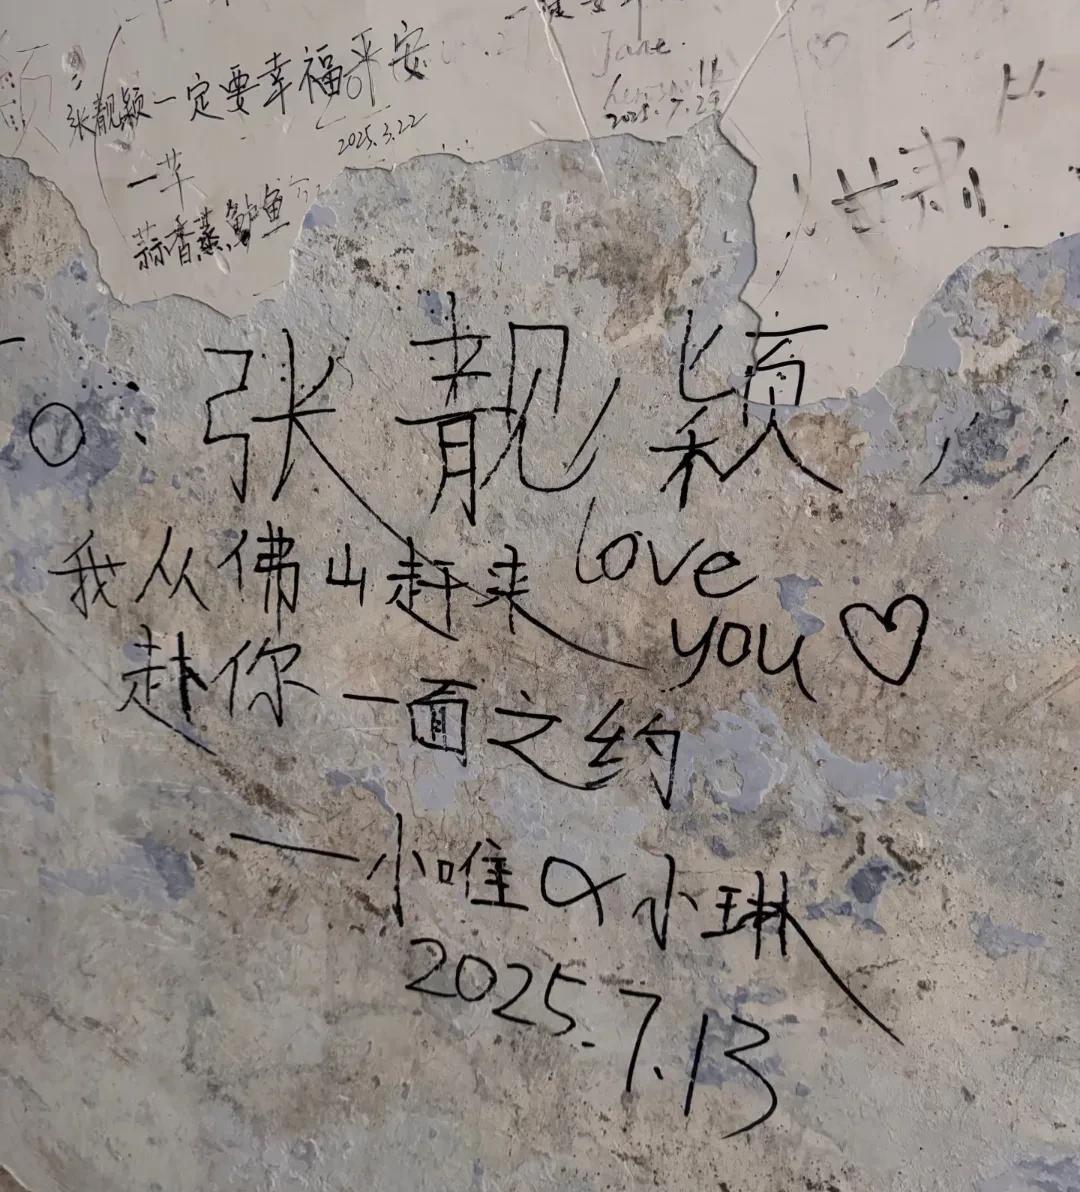 Jane
2025.7.29
张靓颖一定要幸福平安
2025.3.22
一芊
蒜香蒸鲈鱼
甘肃
张靓颖
我从佛山赶来
love you♡
赴你一面之约
—小唯&小琳
2025.7.13